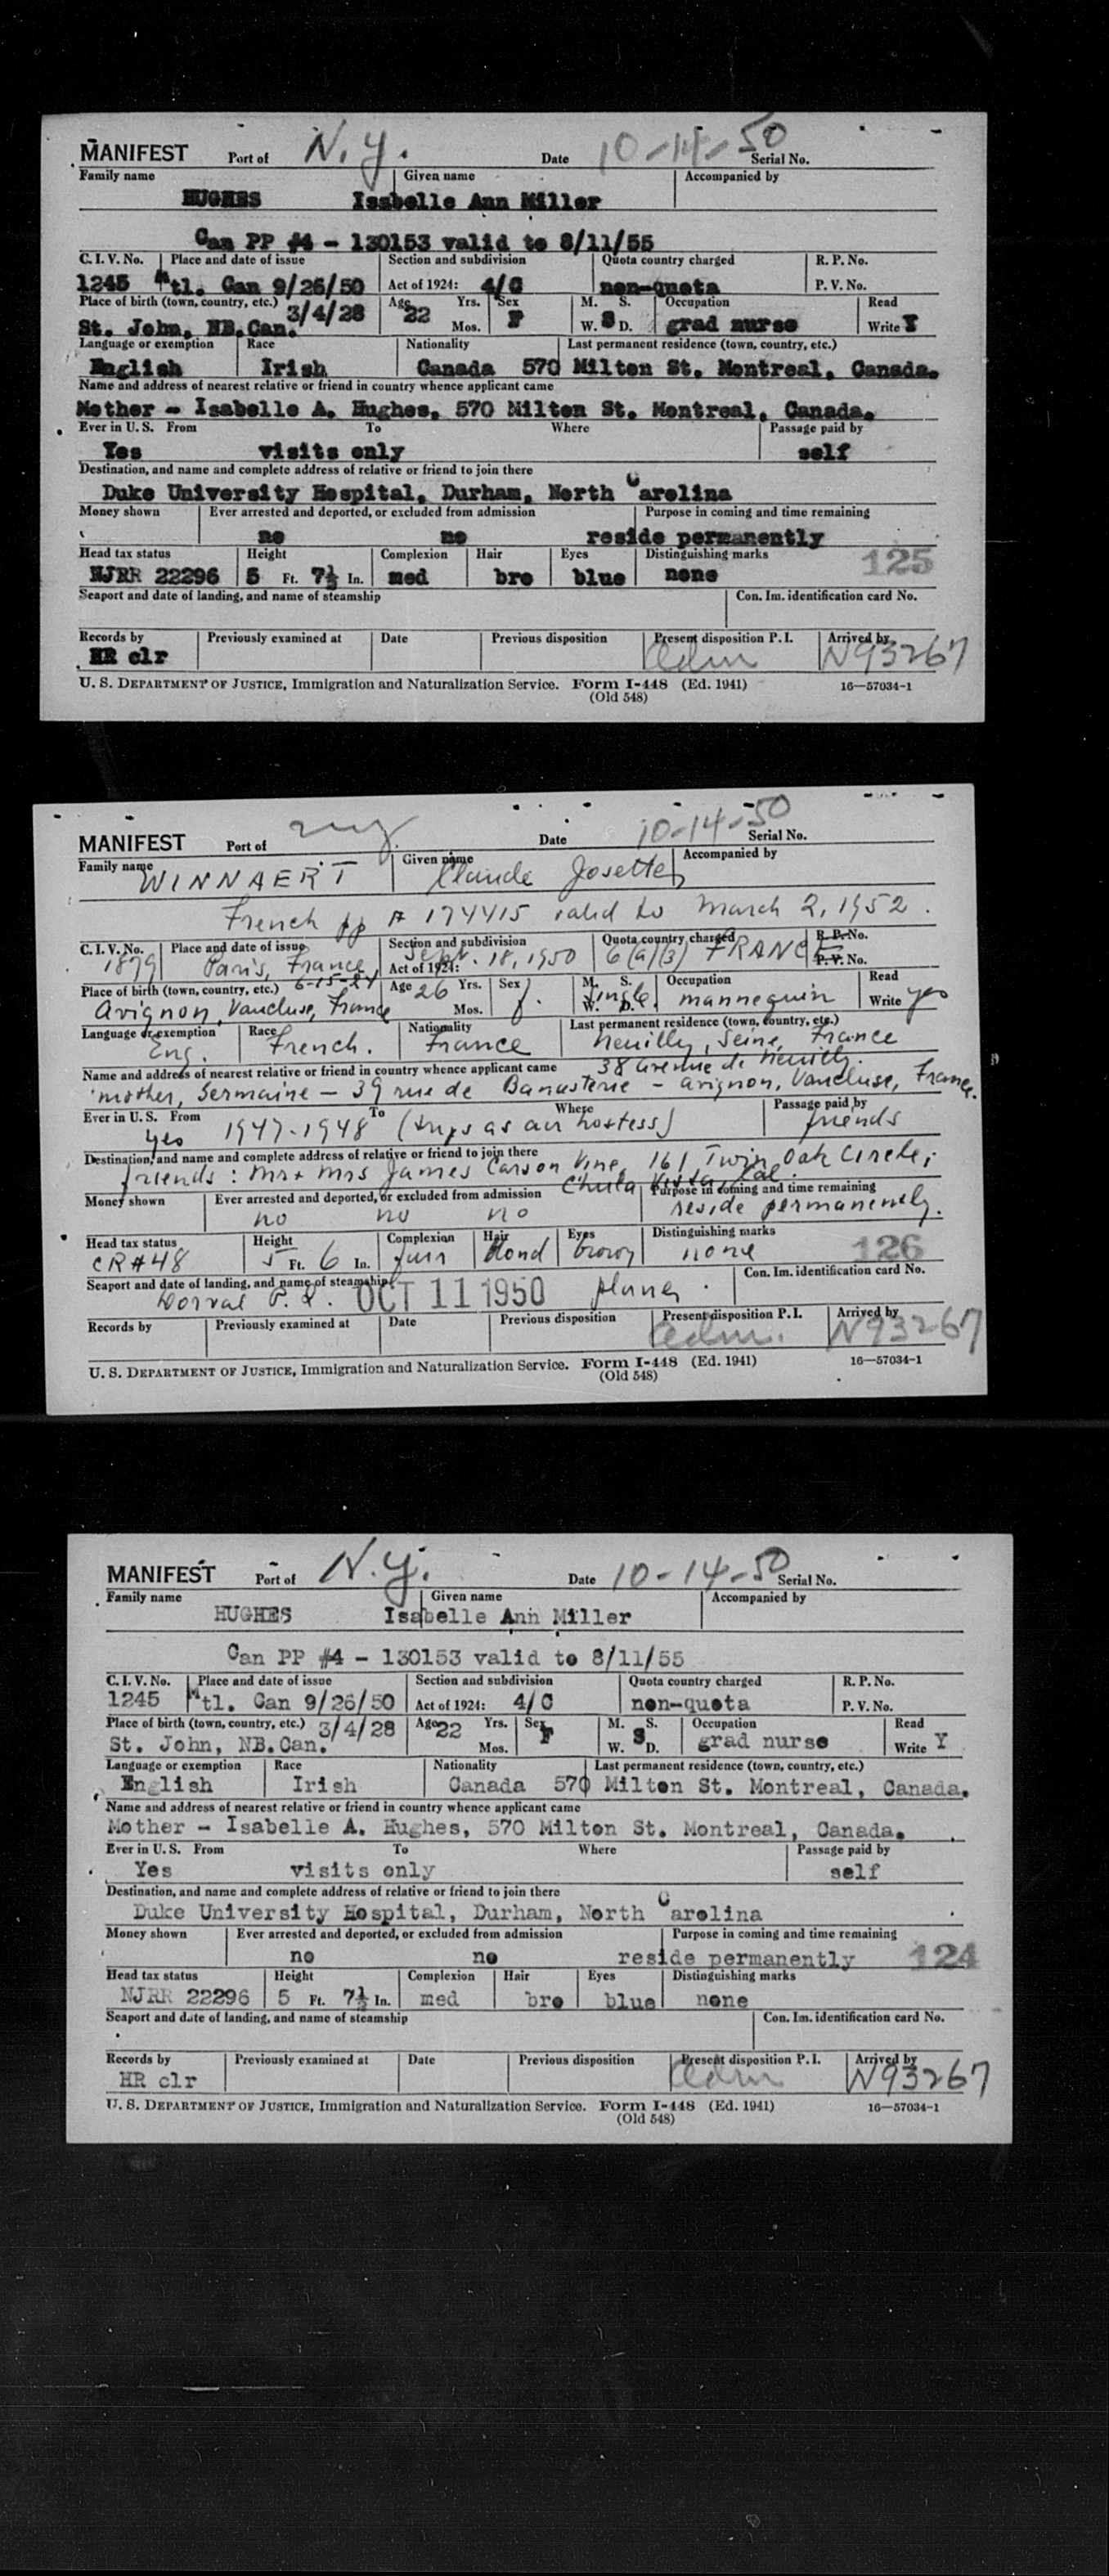 MANIFEST Port of N.Y. Date 10-14-50 Serial No.
Family name Given name Accompanied by
HUGHES Isabelle Ann Miller
Can PP #4 - 130153 valid to 8/11/55
C. I. V. No. Place and date of issue Section and subdivision Quota country charged R. P. No.
1245 Mtl. Can 9/26/50 Act of 1924: 4/C non-quota P. V. No.
Place of birth (town, country, etc.) 3/4/28 Age 22 Yrs. Sex M. S. Occupation Read
St. John, NB.Can. Mos. F W. S D. grad nurse Write Y
Language or exemption Race Nationality Last permanent residence (town, country, etc.)
English Irish Canada 570 Milton St. Montreal, Canada.
Name and address of nearest relative or friend in country whence applicant came
Mother - Isabelle A. Hughes, 570 Milton St. Montreal, Canada.
Ever in U. S. From To Where Passage paid by
Yes visits only self
Destination, and name and complete address of relative or friend to join there
Duke University Hospital, Durham, North Carolina
Money shown Ever arrested and deported, or excluded from admission Purpose in coming and time remaining
no no reside permanently
Head tax status Height Complexion Hair Eyes Distinguishing marks 125
NJRR 22296 5 Ft. 7½ In. med bro blue none
Seaport and date of landing, and name of steamship Con. Im. identification card No.
Records by Previously examined at Date Previous disposition Present disposition P. I. Arrived by
HR clr Adm N93267
U. S. DEPARTMENT OF JUSTICE, Immigration and Naturalization Service. Form I-448 (Ed. 1941) 16—57034-1
(Old 548)
MANIFEST Port of ny. Date 10-14-50 Serial No.
Family name Given name Accompanied by
WINNAERT Claude Josette
French pp # 174415 valid to March 2, 1952.
C. I. V. No. Place and date of issue Section and subdivision Quota country charged R. P. No.
1879 Paris, France, Sept. 18, 1950 Act of 1924: 6(a)(3) FRANCE P. V. No.
Place of birth (town, country, etc.) 6-15-24 Age 26 Yrs. Sex M. S. Occupation Read
Avignon, Vaucluse, France Mos. f. Single W. D. mannequin Write yes
Language or exemption Race Nationality Last permanent residence (town, country, etc.)
Eng. French. France Neuilly, Seine, France
Name and address of nearest relative or friend in country whence applicant came 38 avenue de Neuilly.
mother, Germaine - 39 rue de Banasterie - Avignon, Vaucluse, France.
Ever in U. S. From To Where Passage paid by
yes 1947-1948 (trips as air hostess) friends
Destination, and name and complete address of relative or friend to join there
friends: Mr + Mrs James Carson Vine, 161 Twin Oak Circle,
Chula Vista, Cal.
Money shown Ever arrested and deported, or excluded from admission Purpose in coming and time remaining
no no no reside permanently.
Head tax status Height Complexion Hair Eyes Distinguishing marks 126
CR#48 5 Ft. 6 In. fair blond brown none
Seaport and date of landing, and name of steamship Con. Im. identification card No.
Dorval P.Q. OCT 11 1950 plane.
Records by Previously examined at Date Previous disposition Present disposition P. I. Arrived by
adm. N93267
U. S. DEPARTMENT OF JUSTICE, Immigration and Naturalization Service. Form I-448 (Ed. 1941) 16—57034-1
(Old 548)
MANIFEST Port of N.Y. Date 10-14-50 Serial No.
Family name Given name Accompanied by
HUGHES Isabelle Ann Miller
Can PP #4 - 130153 valid to 8/11/55
C. I. V. No. Place and date of issue Section and subdivision Quota country charged R. P. No.
1245 Mtl. Can 9/26/50 Act of 1924: 4/C non-quota P. V. No.
Place of birth (town, country, etc.) 3/4/28 Age 22 Yrs. Sex M. S. Occupation Read
St. John, NB.Can. Mos. F W. S D. grad nurse Write Y
Language or exemption Race Nationality Last permanent residence (town, country, etc.)
English Irish Canada 570 Milton St. Montreal, Canada.
Name and address of nearest relative or friend in country whence applicant came
Mother - Isabelle A. Hughes, 570 Milton St. Montreal, Canada.
Ever in U. S. From To Where Passage paid by
Yes visits only self
Destination, and name and complete address of relative or friend to join there
Duke University Hospital, Durham, North Carolina
Money shown Ever arrested and deported, or excluded from admission Purpose in coming and time remaining
no no reside permanently 124
Head tax status Height Complexion Hair Eyes Distinguishing marks
NJRR 22296 5 Ft. 7½ In. med bro blue none
Seaport and date of landing, and name of steamship Con. Im. identification card No.
Records by Previously examined at Date Previous disposition Present disposition P. I. Arrived by
HR clr Adm N93267
U. S. DEPARTMENT OF JUSTICE, Immigration and Naturalization Service. Form I-448 (Ed. 1941) 16—57034-1
(Old 548)